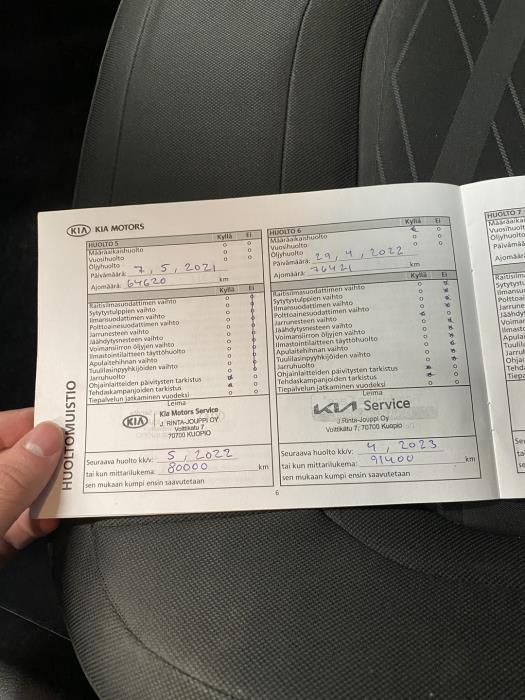 KIA KIA MOTORS
HUOLTO 5 Kyllä Ei
Määräaikaishuolto o o
Vuosihuolto o o
Öljyhuolto o o
Päivämäärä: 7, 5, 2021
Ajomäärä: 64620 km
Kyllä Ei
Raitisilmasuodattimen vaihto
Sytytystulppien vaihto
Ilmansuodattimen vaihto
Polttoainesuodattimen vaihto
Jarrunesteen vaihto
Jäähdytysnesteen vaihto
Voimansiirron öljyjen vaihto
Ilmastointilaitteen täyttöhuolto
Apulaitehihnan vaihto
Tuulilasinpyyhkijöiden vaihto
Jarruhuolto
Ohjainlaitteiden päivitysten tarkistus
Tehdaskampanjoiden tarkistus
Tiepalvelun jatkaminen vuodeksi
Leima
KIA Kia Motors Service
J. RINTA-JOUPPI OY
Volttikatu 7
70700 KUOPIO
Seuraava huolto kk/v: 5, 2022
tai kun mittarilukema: 80000 km
sen mukaan kumpi ensin saavutetaan
HUOLTOMUISTIO
HUOLTO 6 Kyllä Ei
Määräaikaishuolto
Vuosihuolto o o
Öljyhuolto o o
Päivämäärä: 29, 4, 2022
Ajomäärä: 76421 km
Kyllä Ei
Raitisilmasuodattimen vaihto
Sytytystulppien vaihto
Ilmansuodattimen vaihto
Polttoainesuodattimen vaihto
Jarrunesteen vaihto
Jäähdytysnesteen vaihto
Voimansiirron öljyjen vaihto
Ilmastointilaitteen täyttöhuolto
Apulaitehihnan vaihto
Tuulilasinpyyhkijöiden vaihto
Jarruhuolto
Ohjainlaitteiden päivitysten tarkistus
Tehdaskampanjoiden tarkistus
Tiepalvelun jatkaminen vuodeksi
Leima
KIA Service
J.Rinta-Jouppi Oy
Volttikatu 7, 70700 Kuopio
Seuraava huolto kk/v: 4, 2023
tai kun mittarilukema: 91400 km
sen mukaan kumpi ensin saavutetaan
6
HUOLTO 7